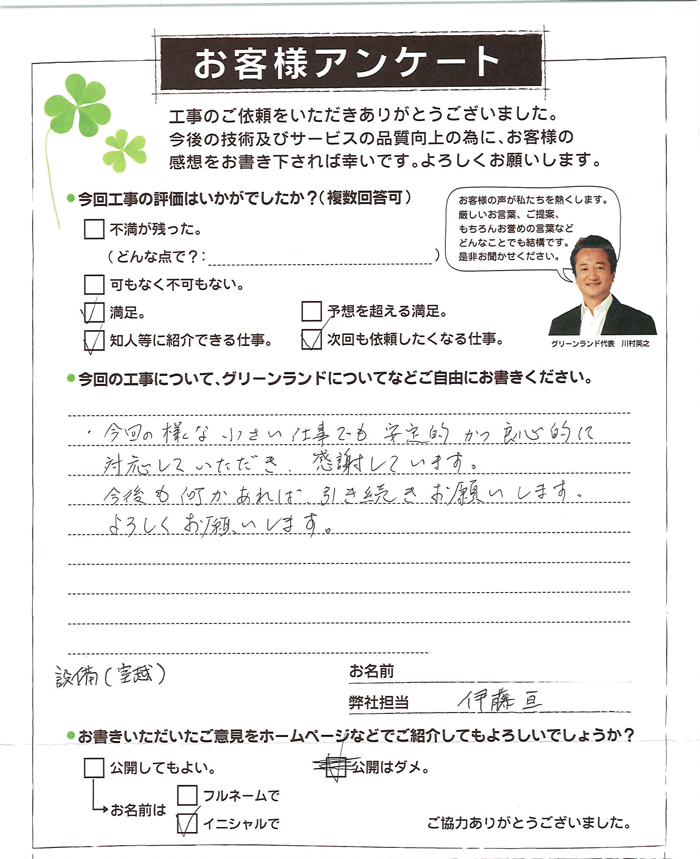 お客様アンケート
工事のご依頼をいただきありがとうございました。
今後の技術及びサービスの品質向上の為に、お客様の
感想をお書き下されば幸いです。よろしくお願いします。
●今回工事の評価はいかがでしたか？（複数回答可）
不満が残った。
（どんな点で？：　）
可もなく不可もない。
満足。
予想を超える満足。
知人等に紹介できる仕事。
次回も依頼したくなる仕事。
お客様の声が私たちを熱くします。
厳しいお言葉、ご提案、
もちろんお誉めの言葉など
どんなことでも結構です。
是非お聞かせください。
グリーンランド代表　川村英之
●今回の工事について、グリーンランドについてなどご自由にお書きください。
・今回の様な小さい仕事でも安定的かつ良心的に
対応していただき、感謝しています。
今後も何かあれば、引き続きお願いします。
よろしくお願いします。
設備（室越）
お名前
弊社担当　伊藤亘
●お書きいただいたご意見をホームページなどでご紹介してもよろしいでしょうか？
公開してもよい。
公開はダメ。
お名前は
フルネームで
イニシャルで
ご協力ありがとうございました。